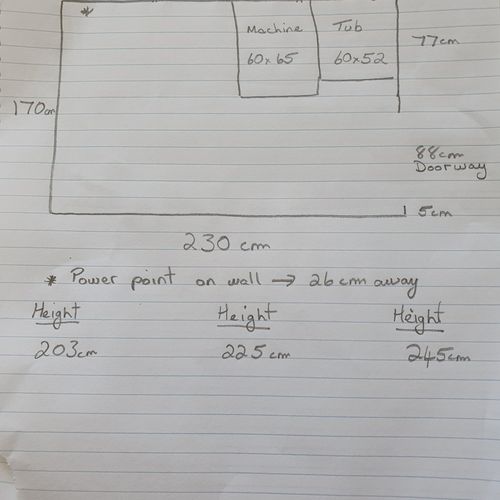 *
Machine
60x65
Tub
60x52
77cm
170cm
88cm
Doorway
5cm
230 cm
* Power point on wall → 26cm away
Height Height Height
203cm 225cm 245cm